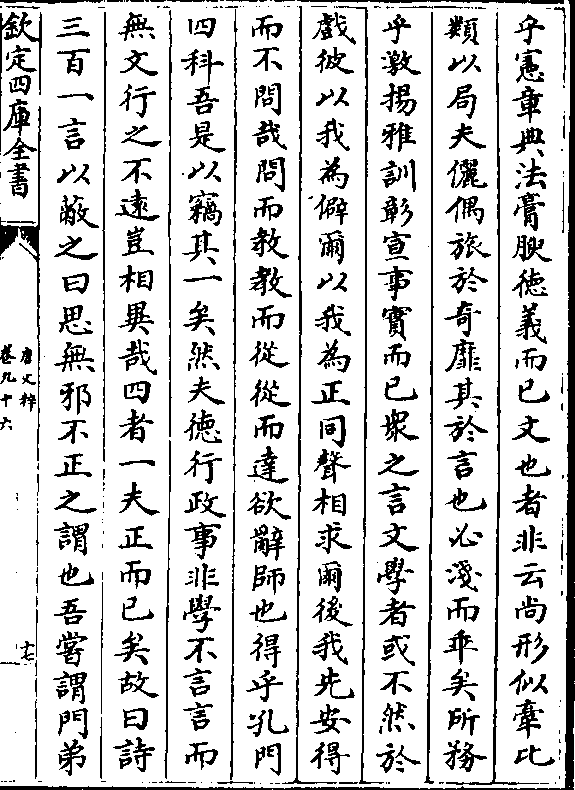 乎憲章典法膏腴徳義而已文也者非云尚形似牽比
類以局夫儷偶旅於奇靡其於言也必淺而乖矣所務
乎激揚雅訓彰宣事實而已衆之言文學者或不然於
戲彼以我為僻爾以我為正同聲相求爾後我先安得
而不問哉問而教教而從從而達欲辭師也得乎孔門
四科吾是以竊其一矣然夫徳行政事非學不言言而
無文行之不逺豈相異哉四者一夫正而已矣故曰詩
三百一言以蔽之曰思無邪不正之謂也吾嘗謂門弟
欽定四庫全書
唐文粹
卷九十六
十七